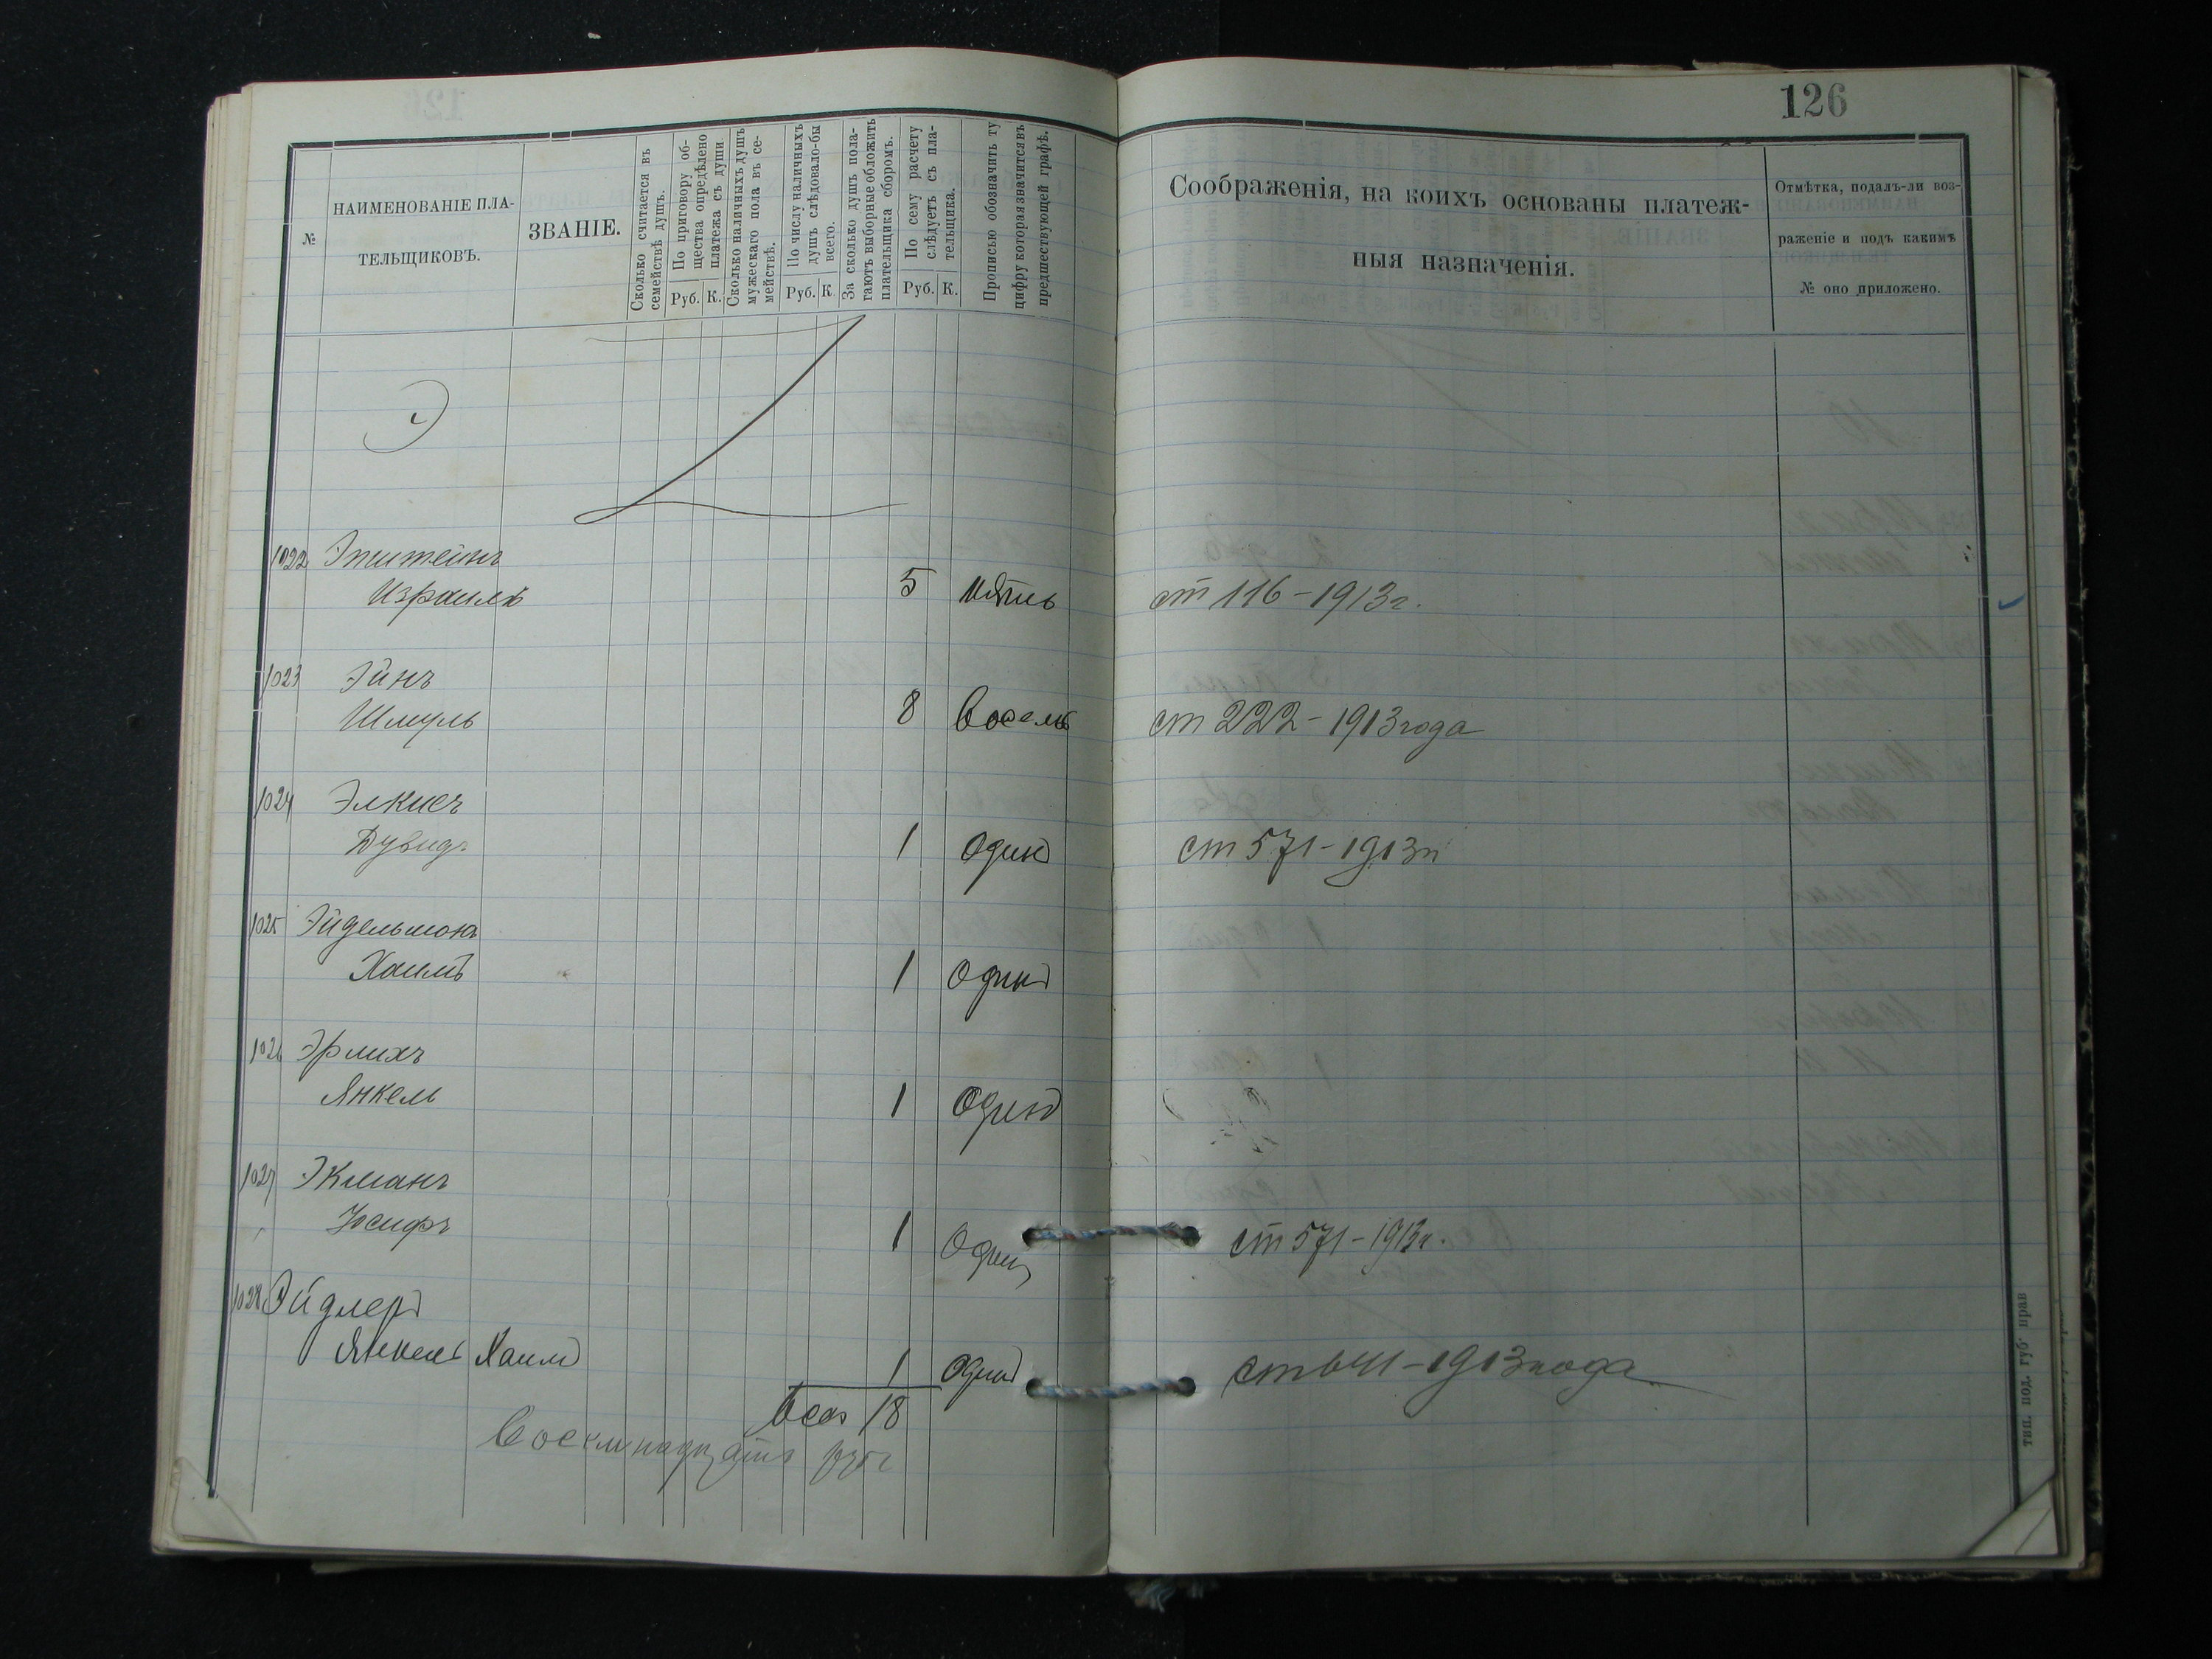 126
№
НАИМЕНОВАНІЕ ПЛА-
ТЕЛЬЩИКОВЪ.
ЗВАНІЕ.
Сколько считается въ
семействѣ душъ.
По приговору об-
щества опредѣлено
платежа съ души.
Руб. К.
Сколько наличныхъ душъ
мужескаго пола въ се-
мействѣ.
По числу наличныхъ
душъ слѣдовало-бы
всего.
Руб. К
За сколько душъ пола-
гаютъ выборные обложить
плательщика сборомъ.
По сему расчету
слѣдуетъ съ пла-
тельщика.
Руб. К.
Прописью обозначить ту
цифру которая значится въ
предшествующей графѣ.
Соображенія, на коихъ основаны платеж-
ныя назначенія.
Отмѣтка, подалъ-ли воз-
раженіе и подъ какимъ
№ оно приложено.
Э
1022 Эпштейнъ
Израиль 5 пять ст 116-1913г.
1023 Эйнъ
Шмуль 8 восемь ст 222-1913года
1024 Элкисъ
Дувидъ 1 одинъ ст 571-1913г
1025 Эйдельман
Хаимъ 1 один
1026 Эрлихъ
Янкель 1 один
1027 Экманъ
Іосифъ 1 один ст 571-1913г.
1028 Эйдлеръ
Янкель Хаим 1 один ст 641-1913года
Всего 18
Восемнадцать руб
тип. под. губ. прав